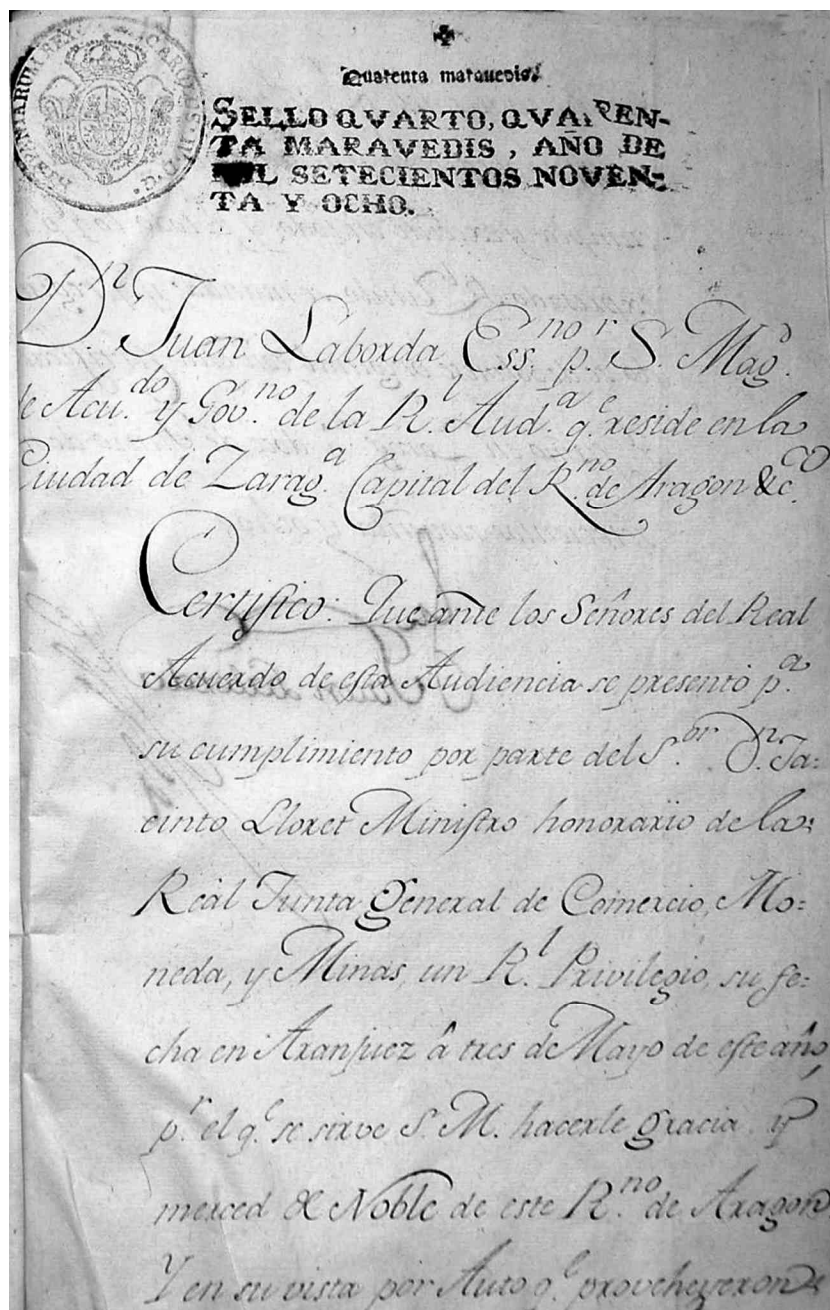 HISPANIARUM REX CAROLUS IV D G
Quarenta maravedis.
SELLO QVARTO, QVAREN-
TA MARAVEDIS, AÑO DE
MIL SETECIENTOS NOVEN-
TA Y OCHO.
D.n Juan Laborda Ess.no p.r S. Mag.d
de Acu.do y Gov.no de la R.l Aud.a q.e reside en la
Ciudad de Zarag.a Capital del R.no de Aragon &c.a
Certifico: Que ante los Señores del Real
Acuerdo de esta Audiencia se presentó p.a
su cumplimiento por parte del S.or D.n Ja=
cinto Lloret Ministro honorario de la=
Real Junta general de Comercio, Mo=
neda, y Minas, un R.l Privilegio, su fe=
cha en Aranjuez â tres de Mayo de este año,
p.r el q.e se sirve S. M. hacerle gracia y
merced de Noble de este R.no de Aragon
Y en su vista por Auto q.e proveheyeron